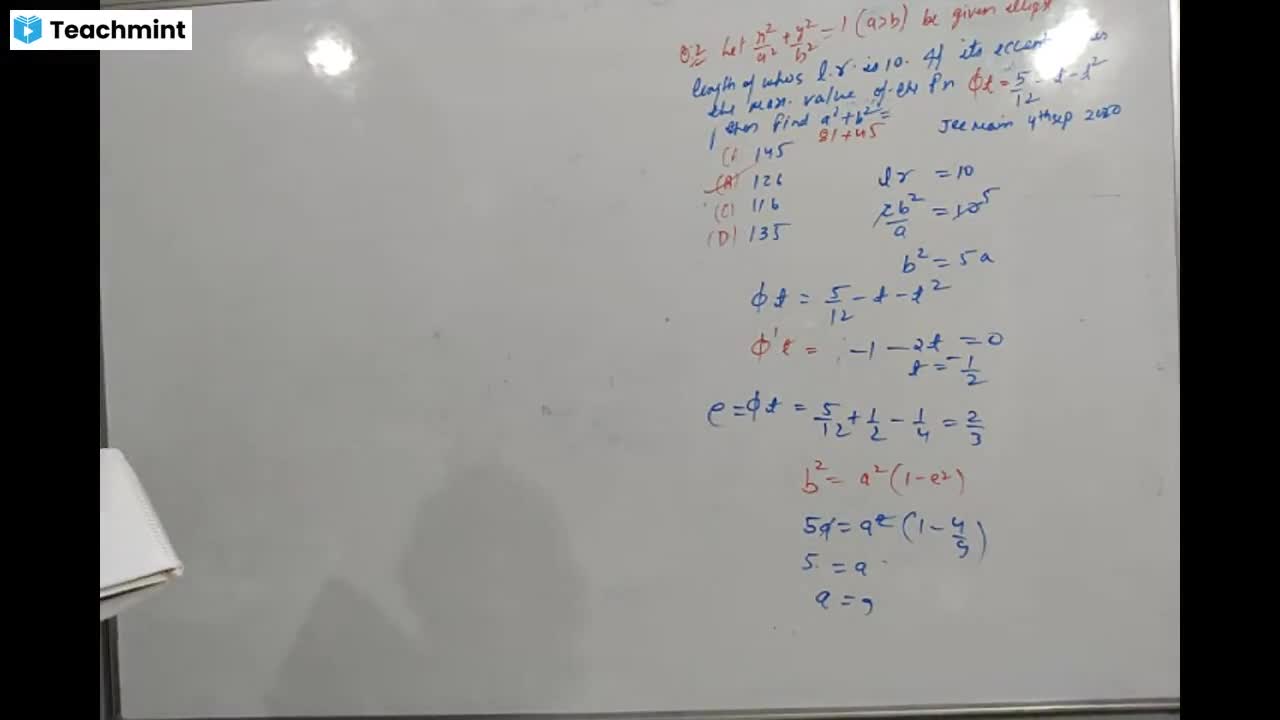 Teachmint
Q.2 Let x²/a² + y²/b² = 1 (a>b) be given ellips
length of whos l.r. is 10. If its eccent is
the max. value of the fn φt = 5/12 - t - t²
then find a²+b² =
81+45
Jee main 4th sep 2020
145
126
(C) 116
(D) 135
lr = 10
2b²/a = 10 5
b² = 5a
φt = 5/12 - t - t²
φ't = -1 - 2t = 0
t = -1/2
e = φt = 5/12 + 1/2 - 1/4 = 2/3
b² = a²(1-e²)
5a = a²(1 - 4/9)
5 = a
a = 9